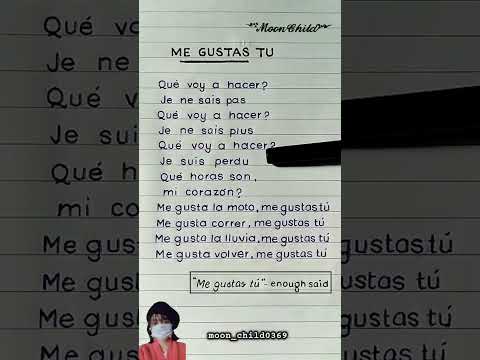 Moon Child
ME GUSTAS TU
Qué voy a hacer?
Je ne sais pas
Qué voy a hacer?
Je ne sais plus
Qué voy a hacer?
Je suis perdu
Qué horas son,
mi corazón?
Me gusta la moto, me gustas tú
Me gusta correr, me gustas tú
Me gusta la lluvia, me gustas tú
Me gusta volver, me gustas tú
"Me gustas tú" - enough said
moon_child0369